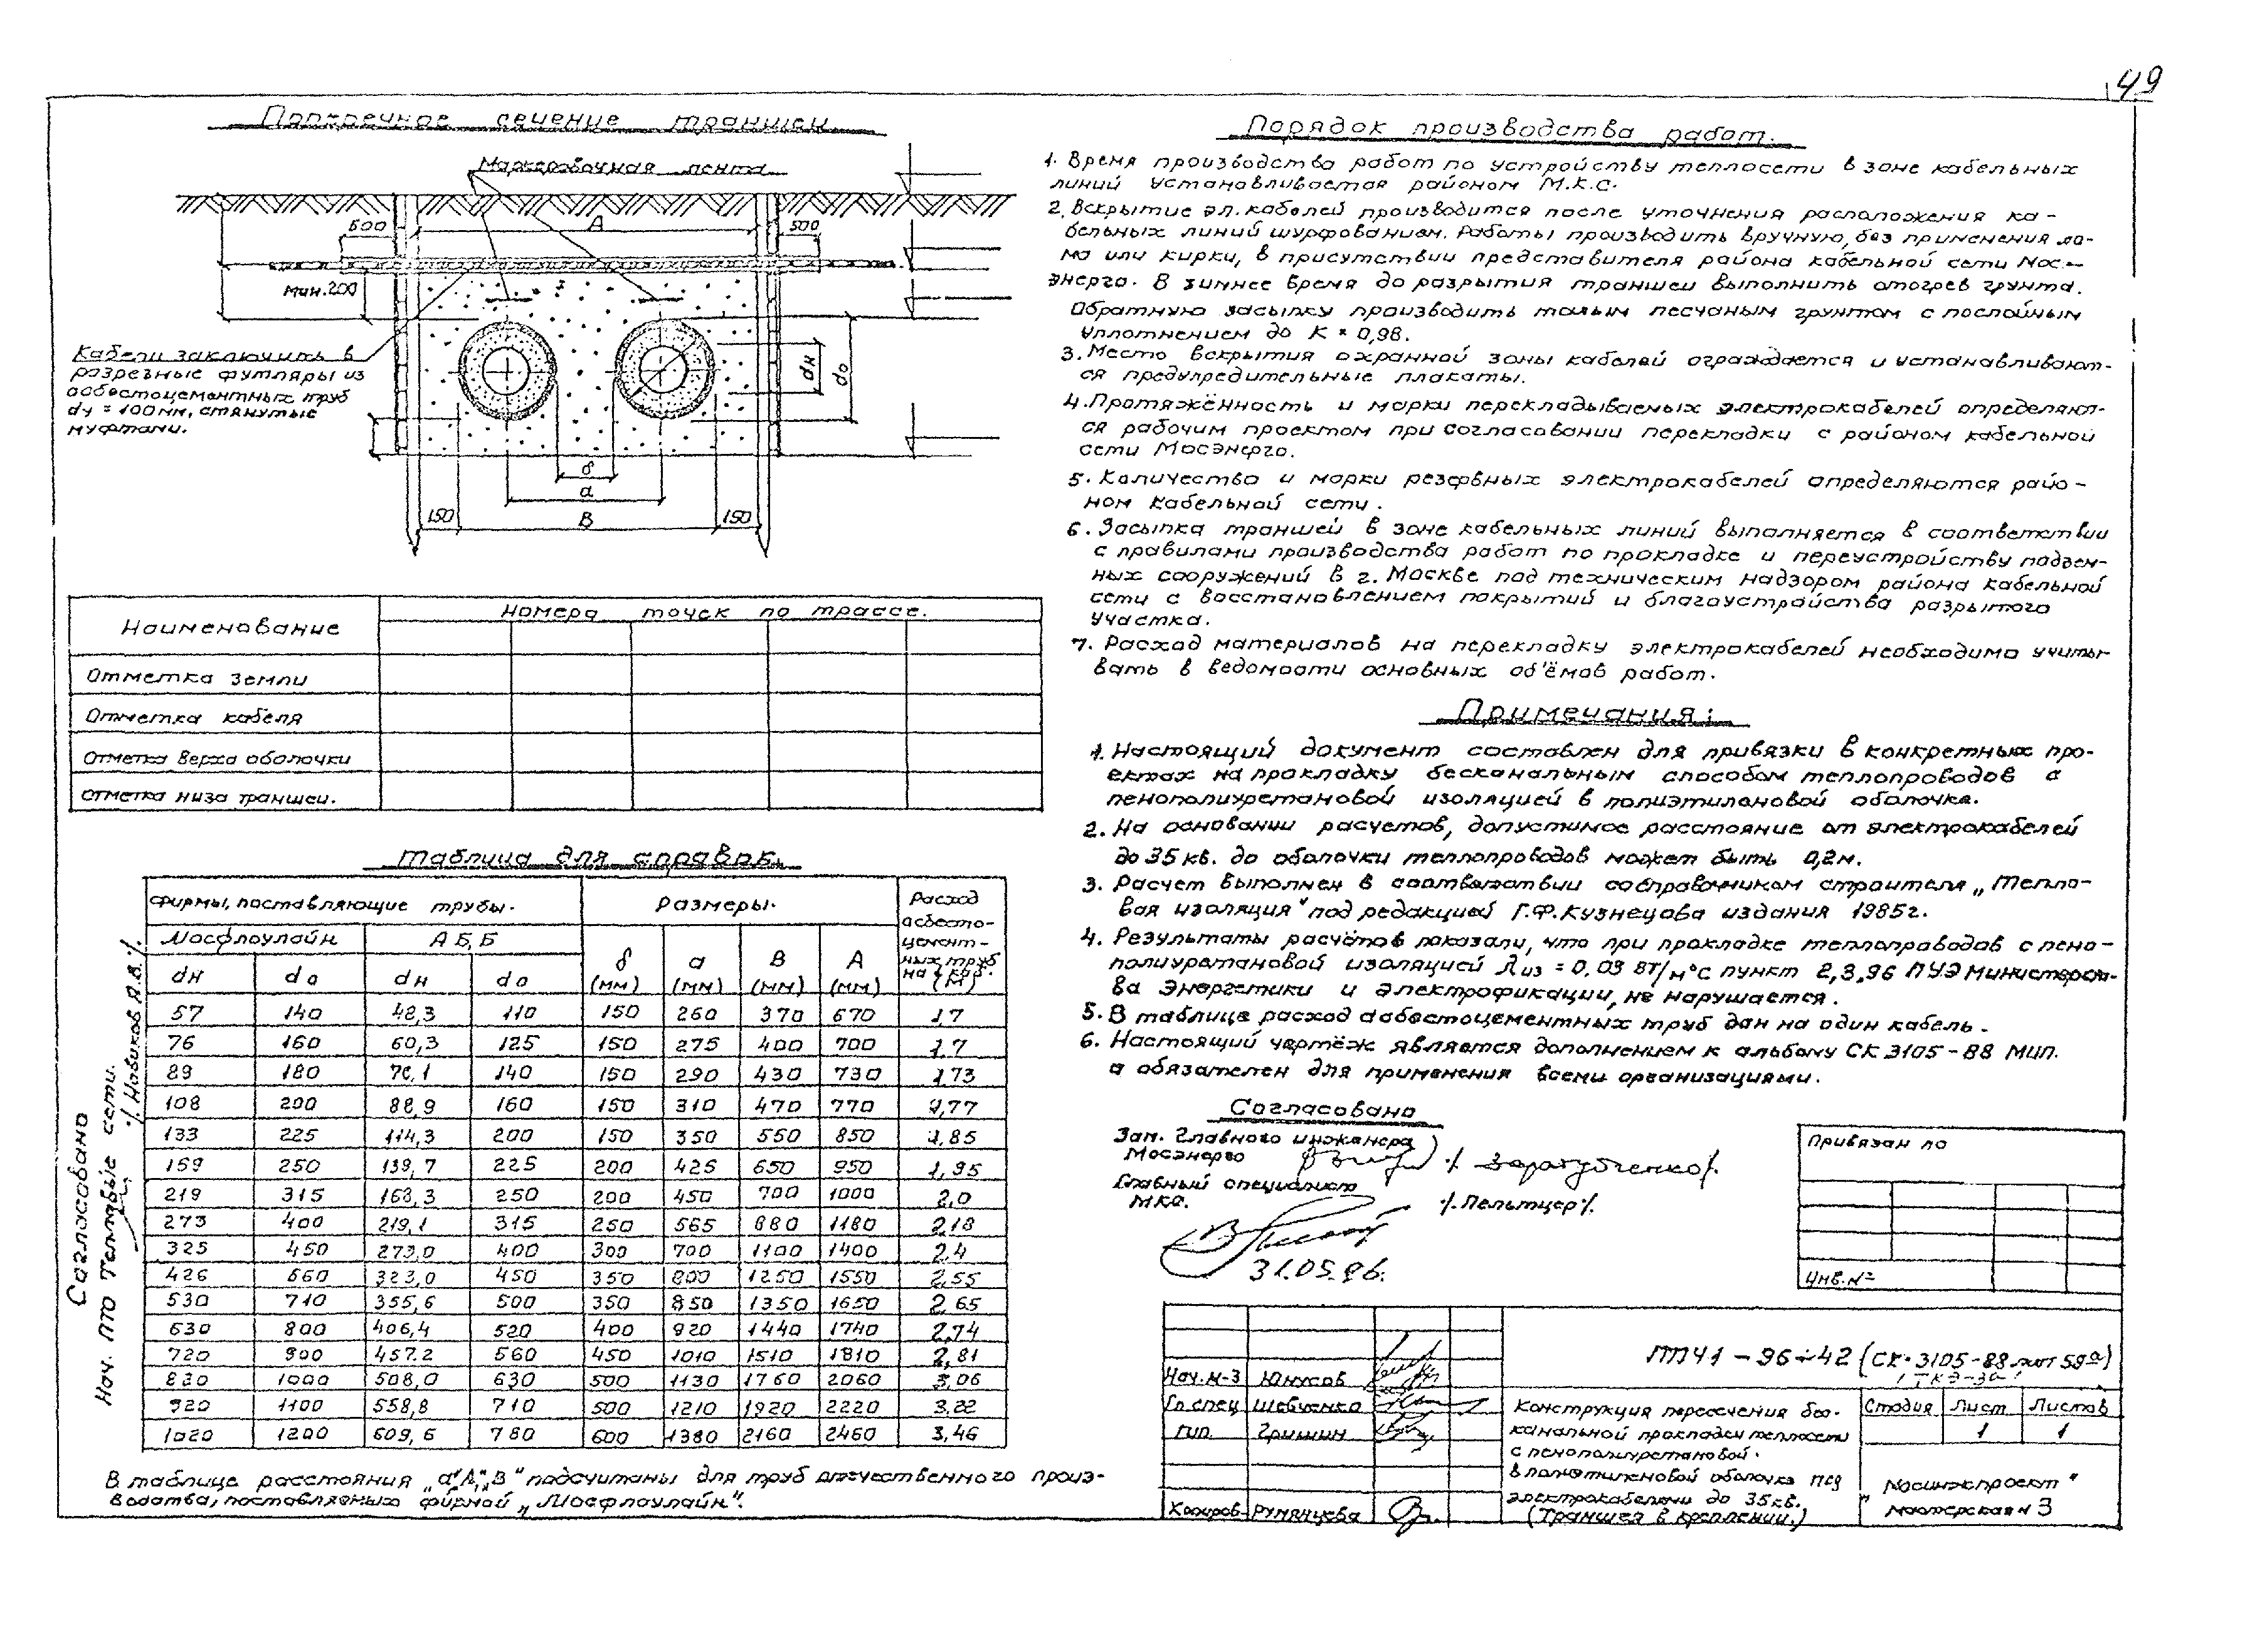 49
Поперечное сечение траншеи
Маркеровочная лента
500
А
500
мин.200
Кабели заключить в
разрезные футляры из
асбестоцементных труб
dу = 100мм, стянутые
муфтами.
dн
do
б
а
150
В
150
Наименование
Номера точек по трассе.
Отметка земли
Отметка кабеля
Отметка верха оболочки
Отметка низа траншеи.
Таблица для справок.
Фирмы, поставляющие трубы.
Размеры.
Расход
асбесто-
цемент-
ных труб
на 1 каб.
(м)
Мосфлоулайн
А Б, Б
dн do dн do б (мм) а (мм) В (мм) А (мм)
57 140 48,3 110 150 260 370 670 1,7
76 160 60,3 125 150 275 400 700 1,7
89 180 76,1 140 150 290 430 730 1,73
108 200 88,9 160 150 310 470 770 1,77
133 225 114,3 200 150 350 550 850 1,85
159 250 139,7 225 200 425 650 950 1,95
219 315 168,3 250 200 450 700 1000 2,0
273 400 219,1 315 250 565 880 1180 2,18
325 450 273,0 400 300 700 1100 1400 2,4
426 560 323,0 450 350 800 1250 1550 2,55
530 710 355,6 500 350 850 1350 1650 2,65
630 800 406,4 520 400 920 1440 1740 2,74
720 900 457.2 560 450 1010 1510 1810 2,81
820 1000 508,0 630 500 1130 1760 2060 3,06
920 1100 558,8 710 500 1210 1920 2220 3,22
1020 1200 609,6 780 600 1380 2160 2460 3,46
В таблице расстояния „а",А",„В" подсчитаны для труб отечественного произ-
водства, поставляемых фирмой „Мосфлоулайн".
Согласовано
Нач. ПТО Тепловые сети.
·/. Новиков А.В.·/.
Порядок производства работ.
1. Время производства работ по устройству теплосети в зоне кабельных
линий устанавливается районом М.К.С.
2. Вскрытие эл. кабелей производится после уточнения расположения ка-
бельных линий шурфованием. Работы производить вручную, без применения ло-
ма или кирки, в присутствии представителя района кабельной сети Мос-
энерго. В зимнее время до разрытия траншеи выполнить отогрев грунта.
Обратную засыпку производить талым песчаным грунтом с послойным
уплотнением до К = 0,98.
3. Место вскрытия охранной зоны кабелей ограждается и устанавливают-
ся предупредительные плакаты.
4. Протяжённость и марки перекладываемых электрокабелей определяют-
ся рабочим проектом при согласовании перекладки с районом кабельной
сети Мосэнерго.
5. Количество и марки резервных электрокабелей определяются райо-
ном кабельной сети.
6. Засыпка траншей в зоне кабельных линий выполняется в соответствии
с правилами производства работ по прокладке и переустройству подзем-
ных сооружений в г. Москве под техническим надзором района кабельной
сети с восстановлением покрытий и благоустройства разрытого
участка.
7. Расход материалов на перекладку электрокабелей необходимо учиты-
вать в ведомости основных об'ёмов работ.
Примечания:
1. Настоящий документ составлен для привязки в конкретных про-
ектах на прокладку бесканальным способом теплопроводов с
пенополиуретановой изоляцией в полиэтиленовой оболочке.
2. На основании расчетов, допустимое расстояние от электрокабелей
до 35 кв. до оболочки теплопроводов может быть 0,2м.
3. Расчет выполнен в соответствии со справочником строителя „Тепло-
вая изоляция" под редакцией Г.Ф. Кузнецова издания 1985г.
4. Результаты расчётов показали, что при прокладке теплопроводов с пено-
полиуретановой изоляцией λиз = 0,03 ВТ/м°С пункт 2,3,96 ПУЭ Министерст-
ва Энергетики и Электрофикации, не нарушается.
5. В таблице расход асбестоцементных труб дан на один кабель.
6. Настоящий чертёж является дополнением к альбому СК 3105-88 МИП.
и обязателен для применения всеми организациями.
Согласовано
Зам. Главного инженера
Мосэнерго
Главный специалист
МКС.
·/. Пельтцер·/.
31.05.96.
Привязан по
Инв.№
ПП41-96-42 (СК-3105-88 лист 59а)
Нач.М-3 Юнусов
Гл.спец Шевченко
ГИП Гришин
Копиров. Румянцева
Конструкция пересечения бес-
канальной прокладки теплосети
с пенополиуретановой.
в полиэтиленовой оболочке под
электрокабелями до 35кв.
(Траншея в креплении.)
Стадия Лист Листов
1 1
„Мосинжпроект"
Мастерская N 3